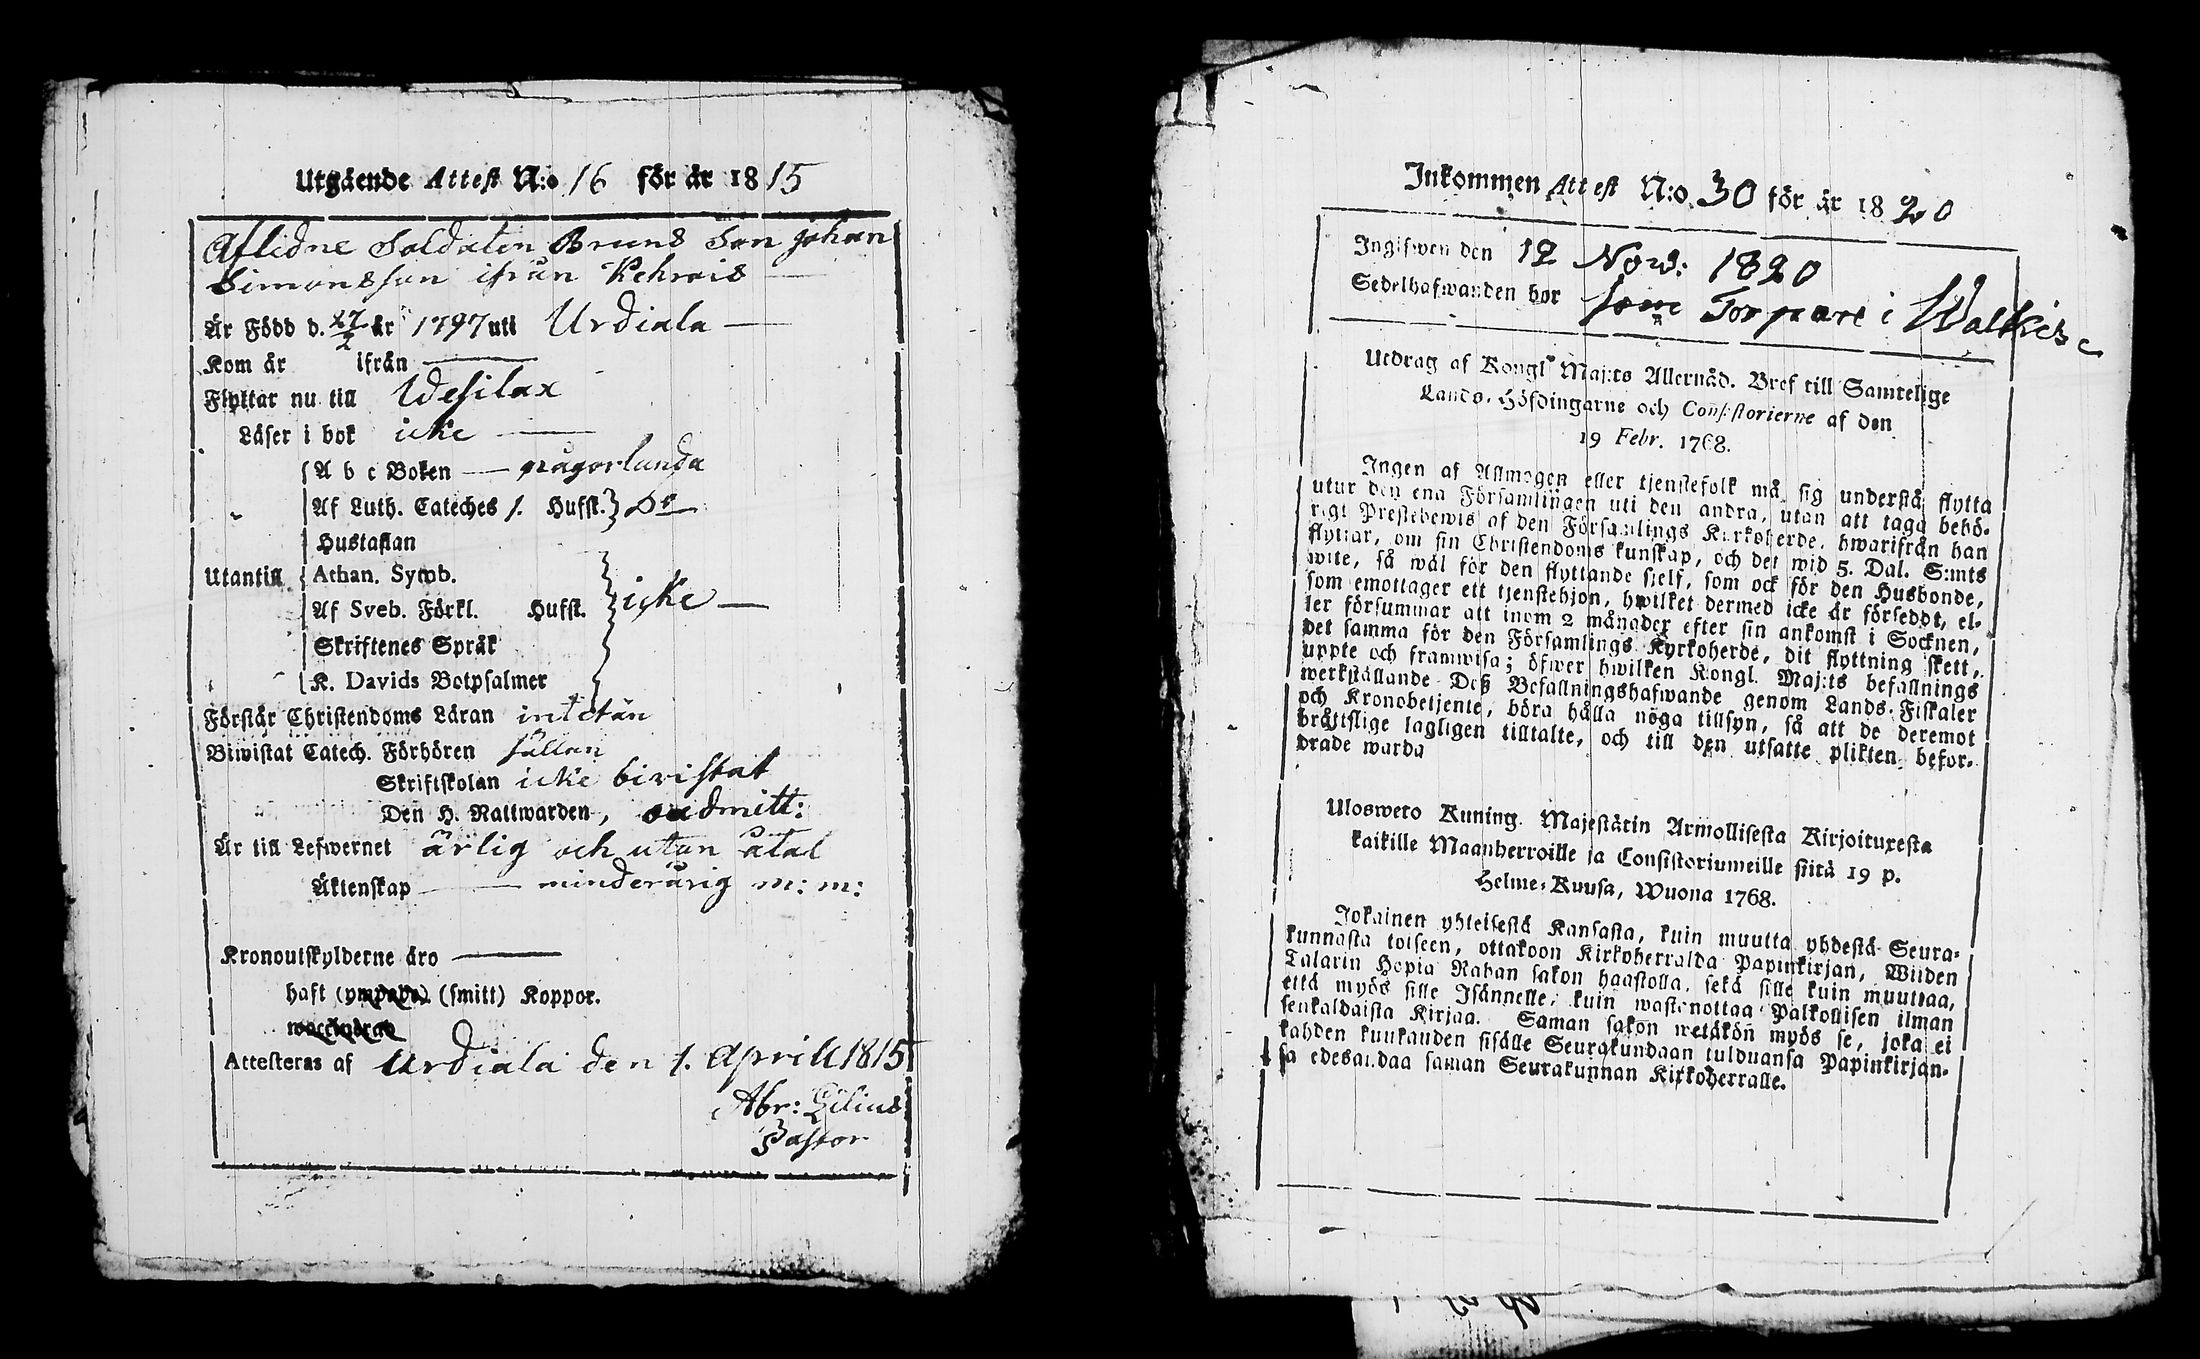 Utgående Attest N:o 16 för år 1815
Aflidne Soldaten Bruns Son Johan
Simonsson ifrån Kehrois
Är Född d. 27/2 år 1797 uti Urdiala
Kom år ifrån
Flyttar nu till Wesilax
Läser i bok icke
A b c Boken någorlunda
Af Luth. Cateches 1. Hufst. Do
Hustaflan
Utantill Athan. Symb.
Af Sveb. Förkl. Hufst. icke
Skriftenes Språk
K. Davids Botpsalmer
Förstår Christendoms Läran intetän
Biwistat Catech. Förhören sällan
Skriftskolan icke bivistat
Den H. Nattwarden, oadmitt:
Är till Lefwernet ärlig och utan åtal
Äktenskap minderårig m: m:
Kronoutskylderne äro
haft (ympade) (smitt) Koppor.
Attesteras af Urdiala den 1. April 1815
Abr: Gilius
Pastor
Inkommen Attest N:o 30 för år 1820
Ingifwen den 12 Now: 1820
Sedelhafwanden bor som Torpare i
Utdrag af Kongl Maj:ts Allernåd. Bref till Samtelige
Lands-Höfdingarne och Consistorierne af den
19 Febr. 1768.
Ingen af Allmogen eller tjenstefolk må sig understå flytta
utur den ena Församlingen uti den andra, utan att taga behö-
rigt Prestebewis af den Församlings Kyrkoherde, hwarifrån han
flyttar, om sin Christendoms kunskap, och det wid 5. Dal. S:mts
wite, så wäl för den flyttande sjelf, som ock för den Husbonde,
som emottager ett tjenstehjon, hwilket dermed icke är förseddt, el-
ler försummar att inom 2 månader efter sin ankomst i Socknen,
det samma för den Församlings Kyrkoherde, dit flyttning skett,
uppte och framwisa; öfwer hwilken Kongl. Maj:ts befallnings
werkställande Deß Befallningshafwande genom Lands-Fiskaler
och Kronobetjente, böra hålla nöga tillsyn, så att de deremot
bråttslige lagligen tilltalte, och till den utsatte plikten befor-
drade warda
Uloswero Kuning. Majestätin Armollisesta Kirjoituxesta
kaikille Maanherroille ja Consistoriumeille siitä 19 p.
Helme-Kuusa, Wuona 1768.
Jokainen yhteisestä Kansasta, kuin muutta yhdestä Seura-
kunnasta toiseen, ottakoon Kirkoherralda Papinkirjan, Wiiden
Talarin Hopia Rahan sakon haastolla, sekä sille kuin muuttaa,
että myös sille Isännelle, kuin wastanottaa Palkollisen ilman
senkaldaista Kirjaa. Saman sakon wetäkön myös se, joka ei
kahden kuukauden sisälle Seurakundaan tulduansa Papinkirjan-
sa edesandaa saman Seurakunnan Kirkoherralle.